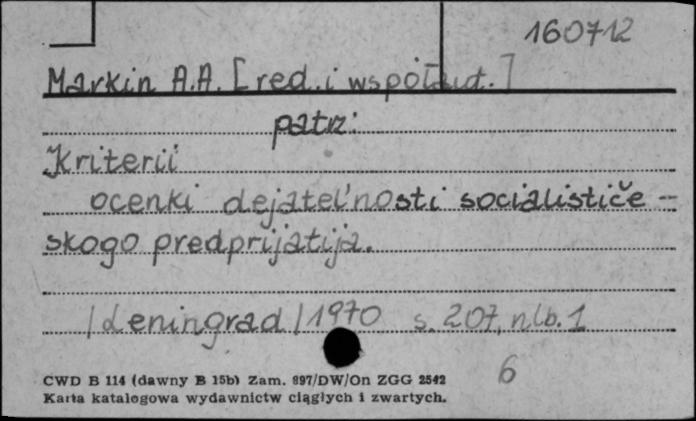 160712
Markin A.A. [red. i współaut.]
patrz:
Kriterii
ocenki dejatel'nosti socialističe-
skogo predprijatija.
/Leningrad/1970 s. 207, nlb. 1
6
CWD B 114 (dawny B 15b) Zam. 897/DW/On ZGG 2542
Karta katalogowa wydawnictw ciągłych i zwartych.